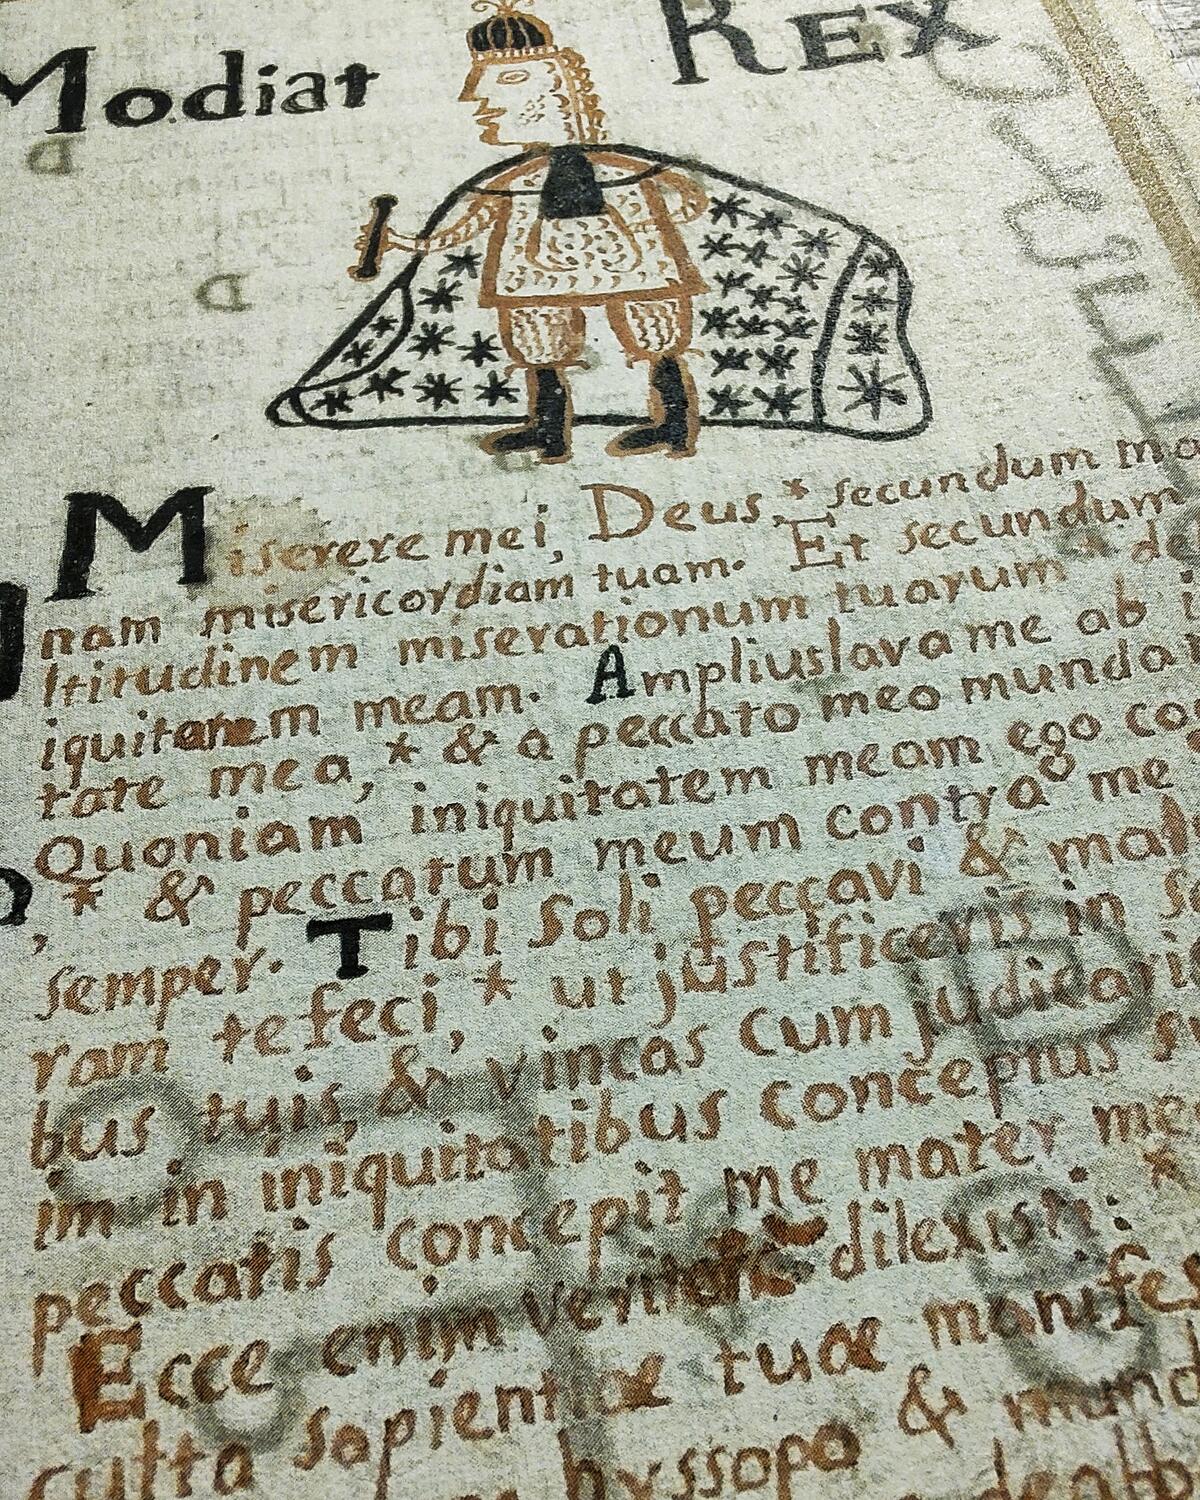 Modiat Rex
Miserere mei, Deus * secundum ma
nam misericordiam tuam. Et secundum
ltitudinem miserationum tuarum * de
iquitatem meam. Ampliuslavame ab i
tate mea, * & a peccato meo munda
Quoniam iniquitatem meam ego co
* & peccatum meum contra me
semper. Tibi Soli peccavi & mal
ram tefeci, * ut justificeris in se
bus tuis & vincas cum judica
im in iniquitatibus conceptus su
peccatis concepit me mater me
Ecce enim veritate dilexisti: *
culta sapientiæ tuæ manife
hyssopo & mund